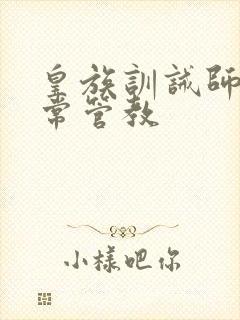 皇族訓誡師
常管教
小樣吧你